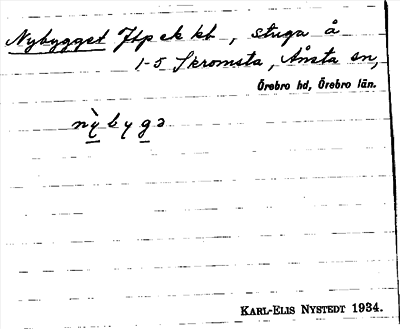 Nybygget Jfp ek kb, stuga å
1-5 Skromsta, Ånsta sn,
Örebro hd, Örebro län.
nỳbygə
KARL-ELIS NYSTEDT 1934.